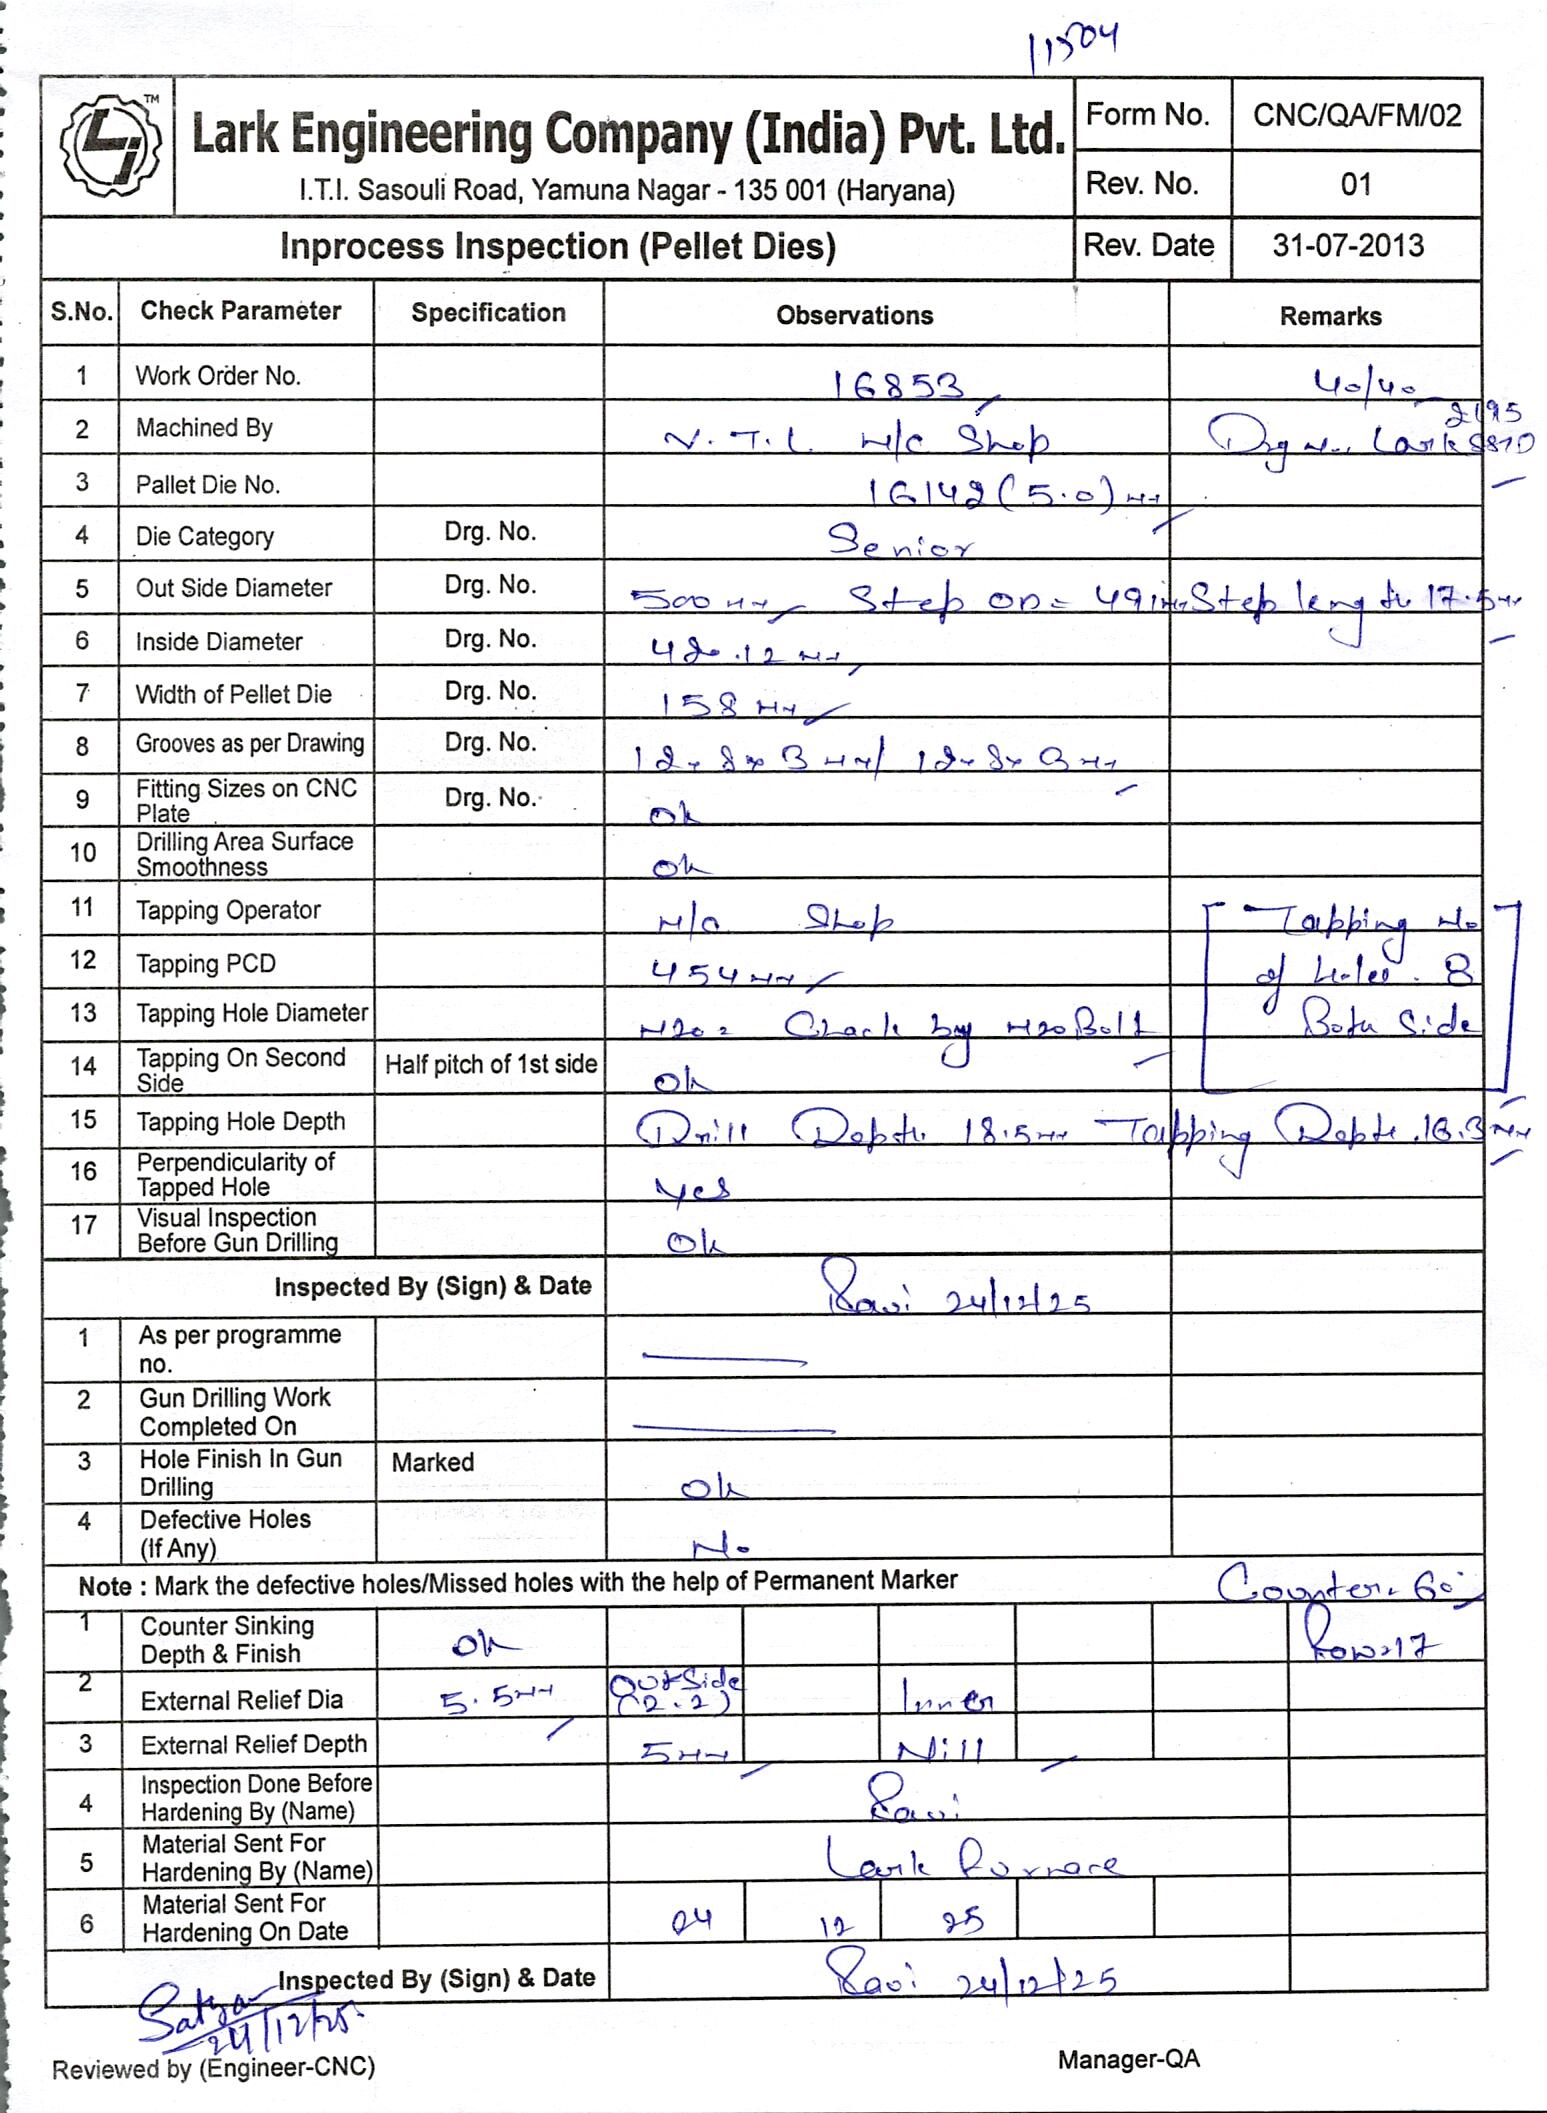 11504
TM
Lark Engineering Company (India) Pvt. Ltd.
I.T.I. Sasouli Road, Yamuna Nagar - 135 001 (Haryana)
Form No. CNC/QA/FM/02
Rev. No. 01
Inprocess Inspection (Pellet Dies) Rev. Date 31-07-2013
S.No. Check Parameter Specification Observations Remarks
1 Work Order No. 16853 40/40
2 Machined By V.T.L M/c Shop Drg No. Lark 8810
2195
3 Pallet Die No. 16142 (5.0) mm
4 Die Category Drg. No. Senior
5 Out Side Diameter Drg. No. 500 mm Step OD = 491mm Step length 17.5mm
6 Inside Diameter Drg. No. 420.12 mm
7 Width of Pellet Die Drg. No. 158 mm
8 Grooves as per Drawing Drg. No. 12x8x3 mm/ 12x8x3mm
9 Fitting Sizes on CNC Plate Drg. No. Ok
10 Drilling Area Surface Smoothness Ok
11 Tapping Operator M/c Shop Tapping No
12 Tapping PCD 454mm of holes. 8
13 Tapping Hole Diameter M20 = Chack by M20 Bolt Both Side
14 Tapping On Second Side Half pitch of 1st side Ok
15 Tapping Hole Depth Drill Depth 18.5mm Tapping Depth .16.3mm
16 Perpendicularity of Tapped Hole Yes
17 Visual Inspection Before Gun Drilling Ok
Inspected By (Sign) & Date Ravi 24/12/25
1 As per programme no.
2 Gun Drilling Work Completed On
3 Hole Finish In Gun Drilling Marked Ok
4 Defective Holes (If Any) No
Note : Mark the defective holes/Missed holes with the help of Permanent Marker Counter. 60°
1 Counter Sinking Depth & Finish OK Row=17
2 External Relief Dia 5.5mm OutSide (2.2) Inner
3 External Relief Depth 5mm Nill
4 Inspection Done Before Hardening By (Name) Ravi
5 Material Sent For Hardening By (Name) Lark Furnace
6 Material Sent For Hardening On Date 24 12 25
Inspected By (Sign) & Date Ravi 24/12/25
Satyan
24/12/25
Reviewed by (Engineer-CNC) Manager-QA